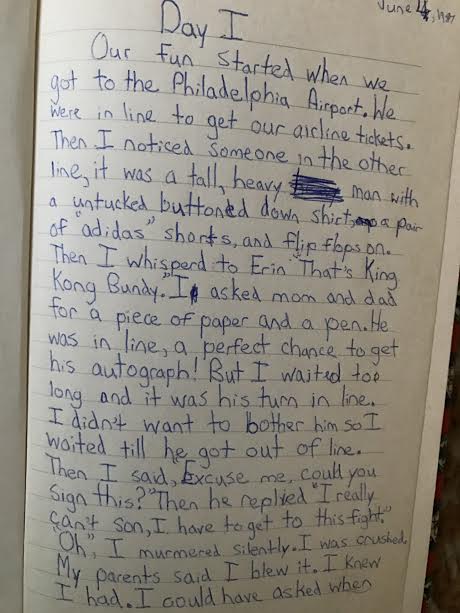 June 4, 1987
Day I
Our fun started when we
got to the Philadelphia Airport. We
were in line to get our airline tickets.
Then I noticed someone in the other
line, it was a tall, heavy man with
a untucked buttoned down shirt, a pair
of "adidas" shorts, and flip flops on.
Then I whisperd to Erin "That's King
Kong Bundy." I asked mom and dad
for a piece of paper and a pen. He
was in line, a perfect chance to get
his autograph! But I waited too
long and it was his turn in line.
I didn't want to bother him so I
waited till he got out of line.
Then I said, "Excuse me, could you
sign this?" Then he replyed "I really
can't son, I have to get to this fight."
"Oh", I murmered silently. I was crushed.
My parents said I blew it. I knew
I had. I could have asked when